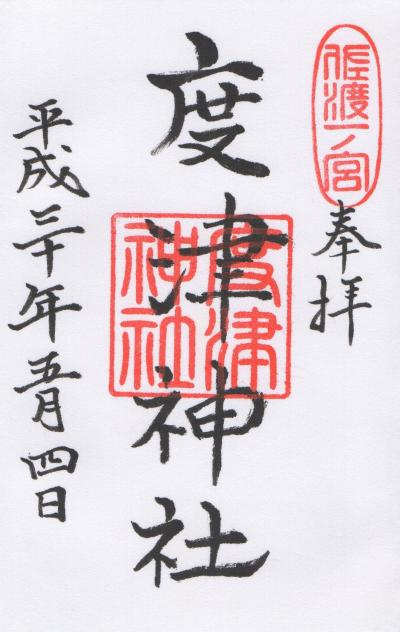 佐渡一ノ宮
奉拝
度津神社
度津神社
平成三十年五月四日